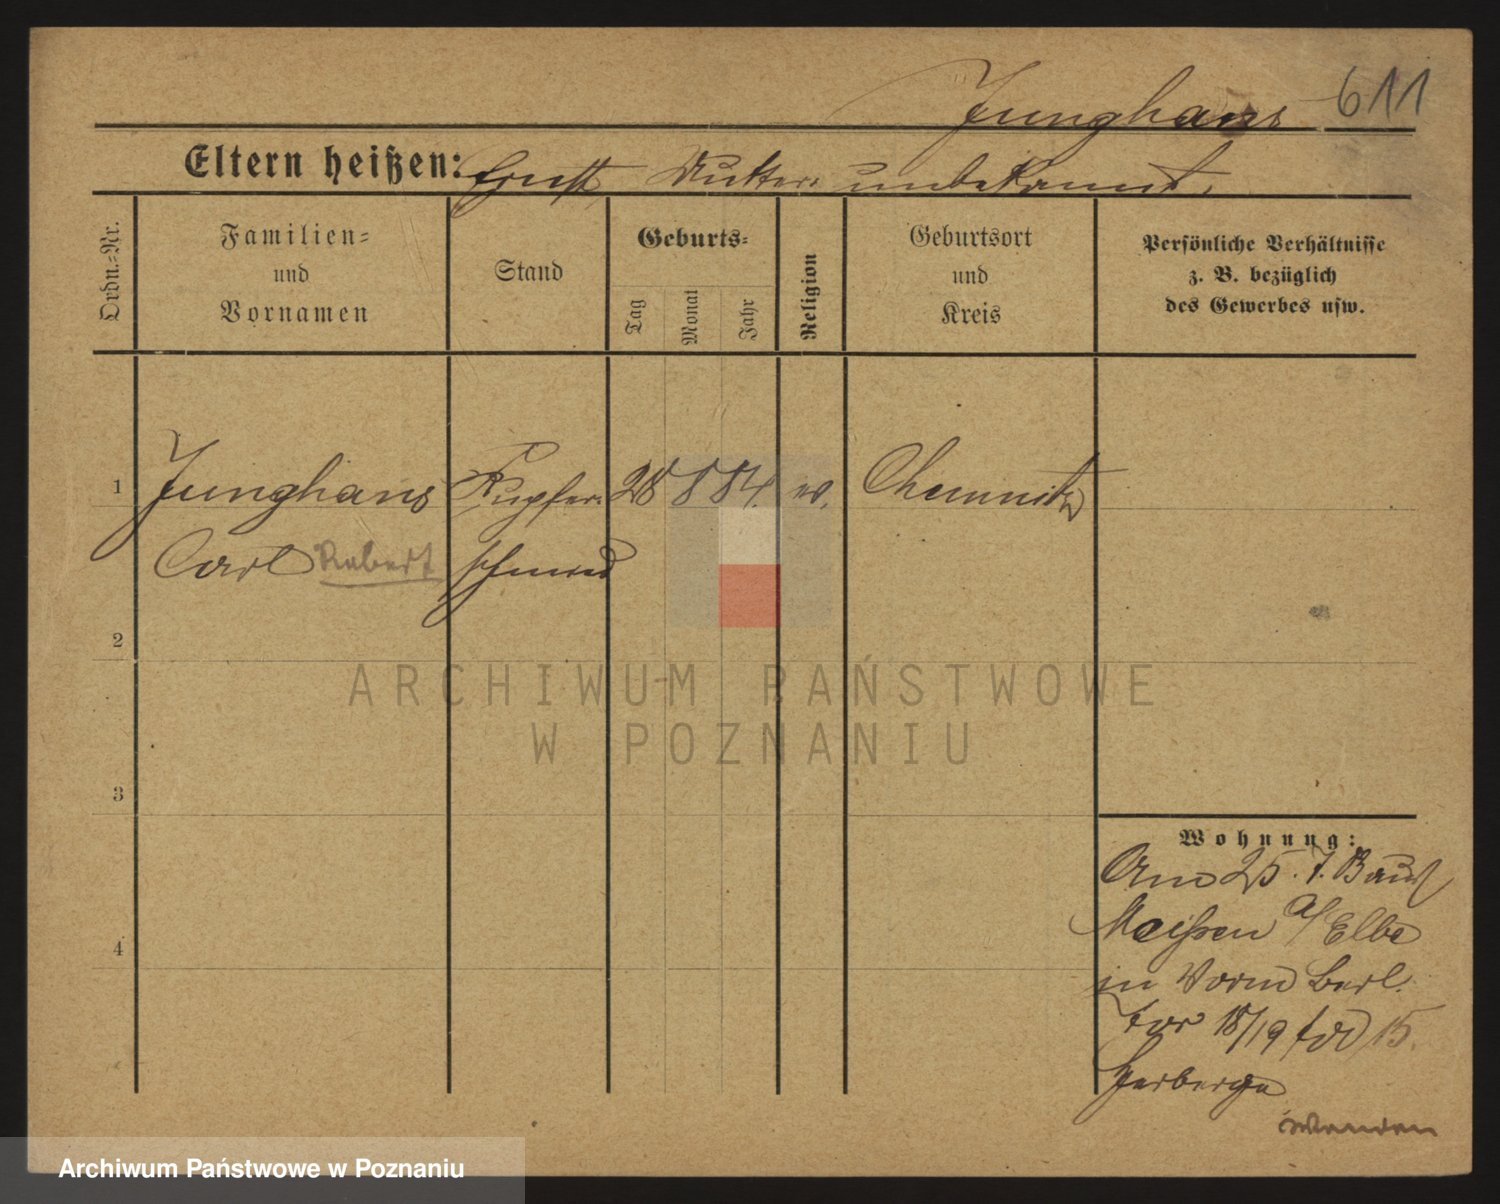 Junghans 611
Eltern heißen: Ernst, Mutter unbekannt.
Ordn.-Nr.
Familien-
und
Vornamen
Stand
Geburts-
Tag
Monat
Jahr
Religion
Geburtsort
und
Kreis
Persönliche Verhältnisse
z. B. bezüglich
des Gewerbes usw.
1 Junghans Kupfer- 28 8 84. ev. Chemnitz
Carl Robert schmied
2
3
4
Wohnung:
25. 7.
Meißen a/Elbe
in
18/19 15.
Herberge
ARCHIWUM PAŃSTWOWE
W POZNANIU
Archiwum Państwowe w Poznaniu